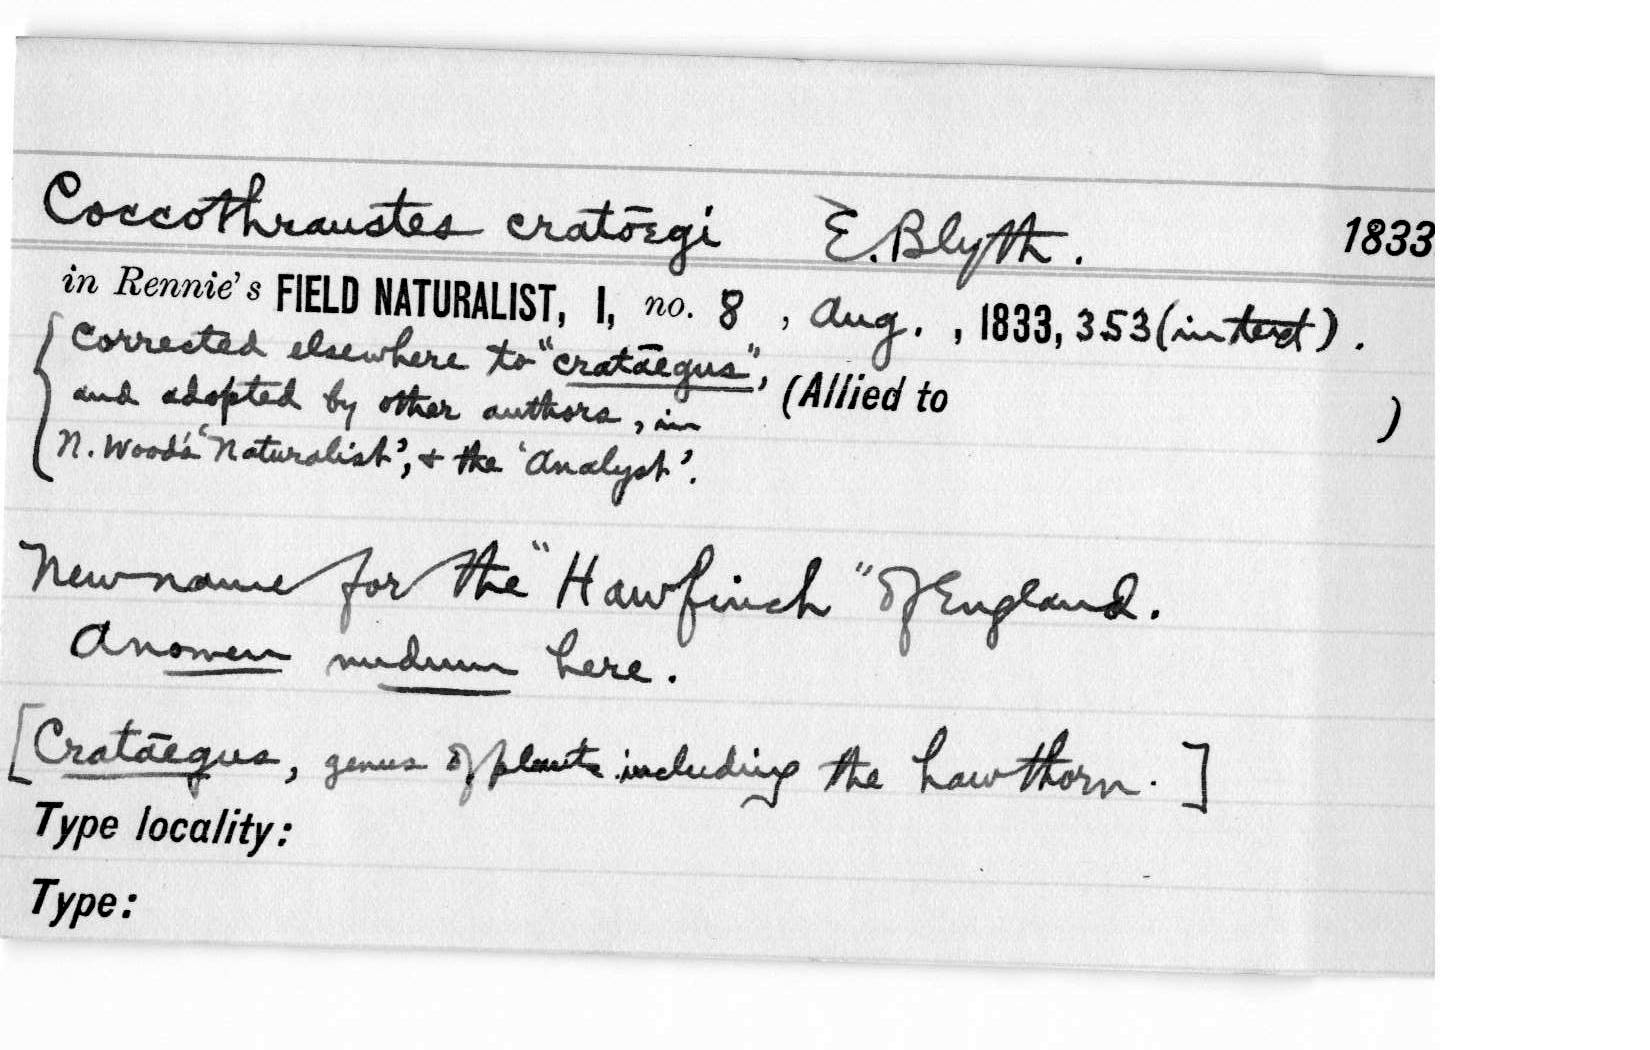 Coccothraustes cratōegi E. Blyth. 1833
in Rennie's FIELD NATURALIST, I, no. 8, Aug., 1833, 353 (in text).
Corrected elsewhere to "cratāegus",
(Allied to )
and adopted by other authors, in
N. Wood's 'Naturalist', & the 'Analyst'.
New name for the "Hawfinch" of England.
A nomen nudum here.
[Cratāegus, genus of plants including the hawthorn.]
Type locality:
Type: